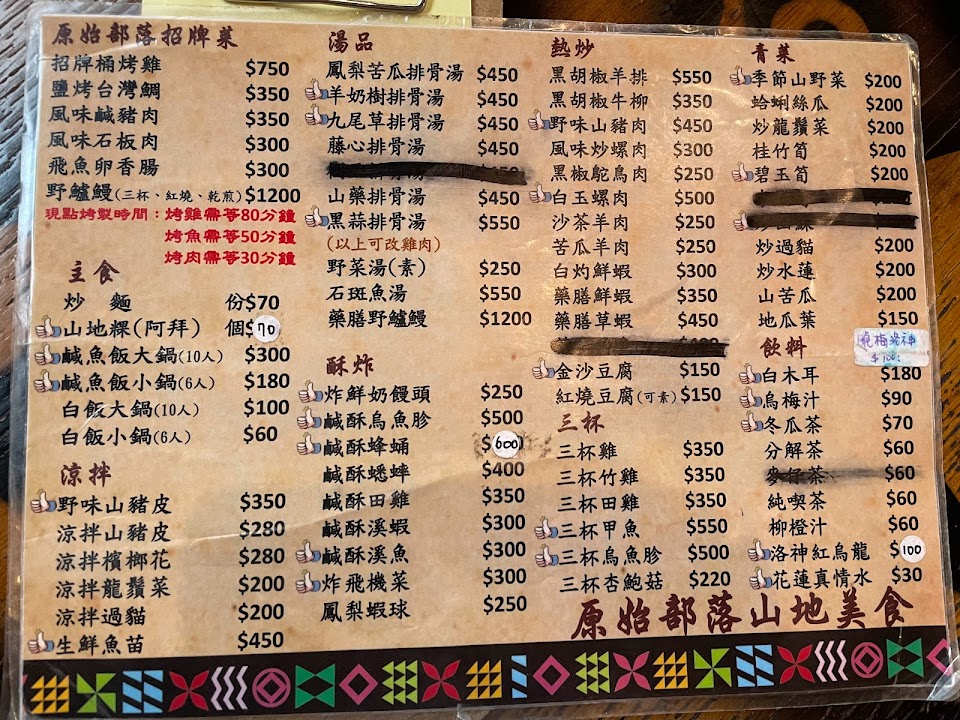 原始部落招牌菜
招牌桶烤雞 $750
鹽烤台灣鯛 $350
風味鹹豬肉 $350
風味石板肉 $300
飛魚卵香腸 $300
野鱸鰻(三杯、紅燒、乾煎) $1200
現點烤製時間：烤雞需等80分鐘
烤魚需等50分鐘
烤肉需等30分鐘
主食
炒 麵 份$70
山地粿(阿拜) 個$70
鹹魚飯大鍋(10人) $300
鹹魚飯小鍋(6人) $180
白飯大鍋(10人) $100
白飯小鍋(6人) $60
涼拌
野味山豬皮 $350
涼拌山豬皮 $280
涼拌檳榔花 $280
涼拌龍鬚菜 $200
涼拌過貓 $200
生鮮魚苗 $450
湯品
鳳梨苦瓜排骨湯 $450
羊奶樹排骨湯 $450
九尾草排骨湯 $450
藤心排骨湯 $450
山藥排骨湯 $450
黑蒜排骨湯 $550
(以上可改雞肉)
野菜湯(素) $250
石斑魚湯 $550
藥膳野鱸鰻 $1200
酥炸
炸鮮奶饅頭 $250
鹹酥烏魚胗 $500
鹹酥蜂蛹 $600
鹹酥蟋蟀 $400
鹹酥田雞 $350
鹹酥溪蝦 $300
鹹酥溪魚 $300
炸飛機菜 $300
鳳梨蝦球 $250
熱炒
黑胡椒羊排 $550
黑胡椒牛柳 $350
野味山豬肉 $450
風味炒螺肉 $300
黑椒鴕鳥肉 $250
白玉螺肉 $500
沙茶羊肉 $250
苦瓜羊肉 $250
白灼鮮蝦 $300
藥膳鮮蝦 $350
藥膳草蝦 $450
金沙豆腐 $150
紅燒豆腐(可素) $150
三杯
三杯雞 $350
三杯竹雞 $350
三杯田雞 $350
三杯甲魚 $550
三杯烏魚胗 $500
三杯杏鮑菇 $220
青菜
季節山野菜 $200
蛤蜊絲瓜 $200
炒龍鬚菜 $200
桂竹筍 $200
碧玉筍 $200
炒過貓 $200
炒水蓮 $200
山苦瓜 $200
地瓜葉 $150
飲料
白木耳 $180
烏梅汁 $90
冬瓜茶 $70
分解茶 $60
麥仔茶 $60
純喫茶 $60
柳橙汁 $60
洛神紅烏龍 $100
花蓮真情水 $30
原始部落山地美食